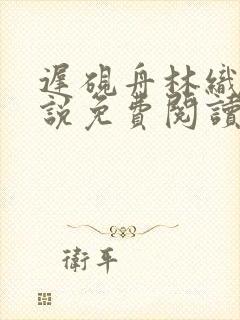 遲硯舟林織
說免費閱讀
衛平